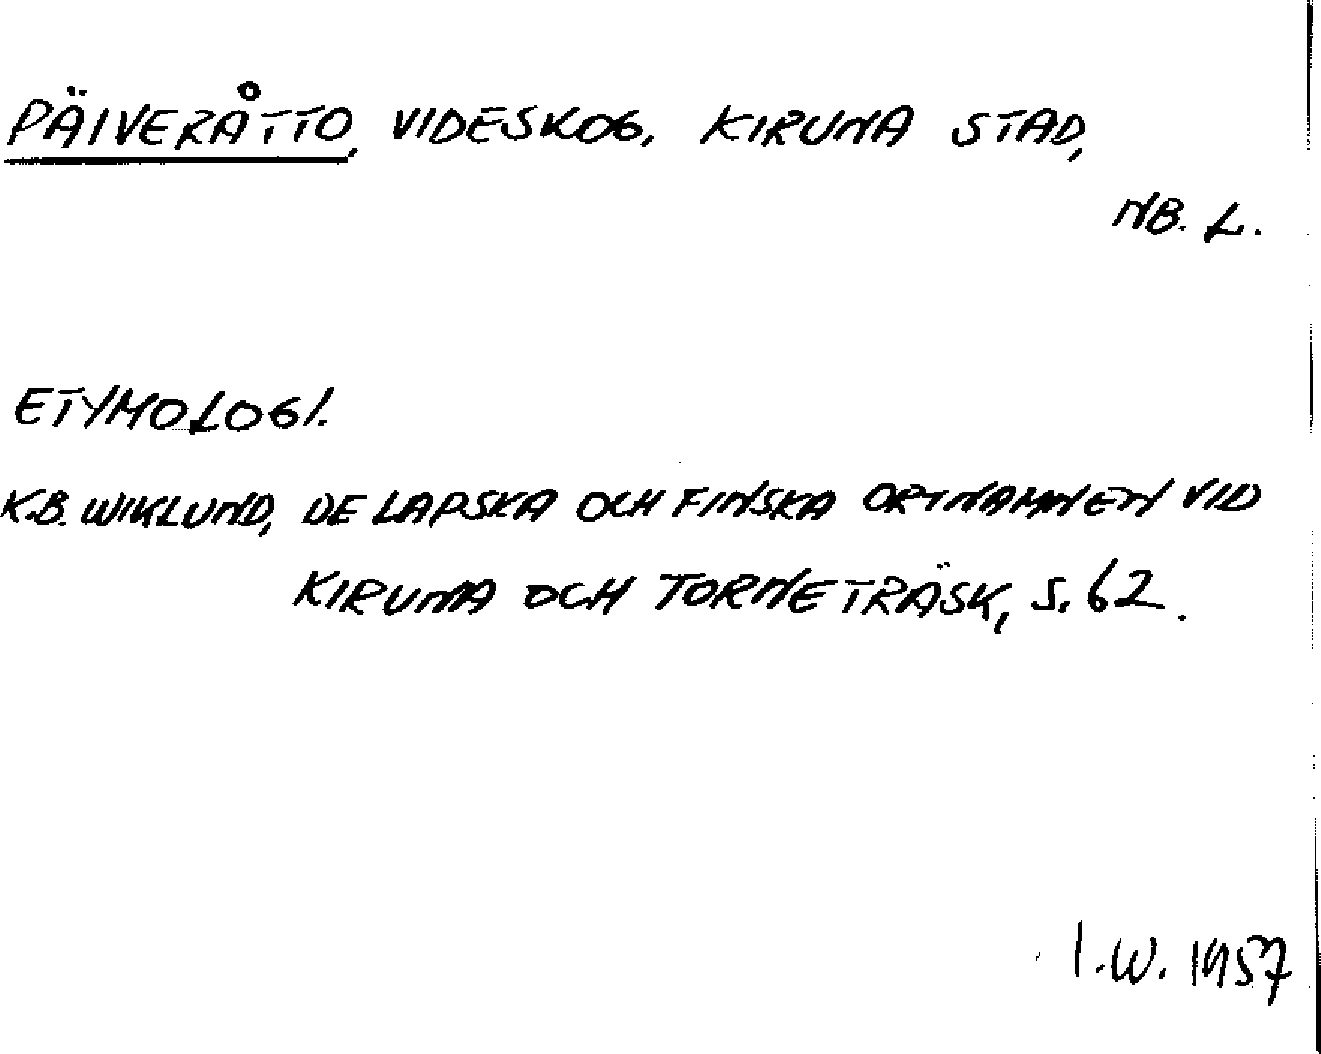 PÄIVERÅTTO, VIDESKOG, KIRUNA STAD,
NB. L.
ETYMOLOGI.
K.B. WIKLUND, DE LAPSKA OCH FINSKA ORTNAMNEN VID
KIRUNA OCH TORNETRÄSK, S. 62.
I.W. 1957